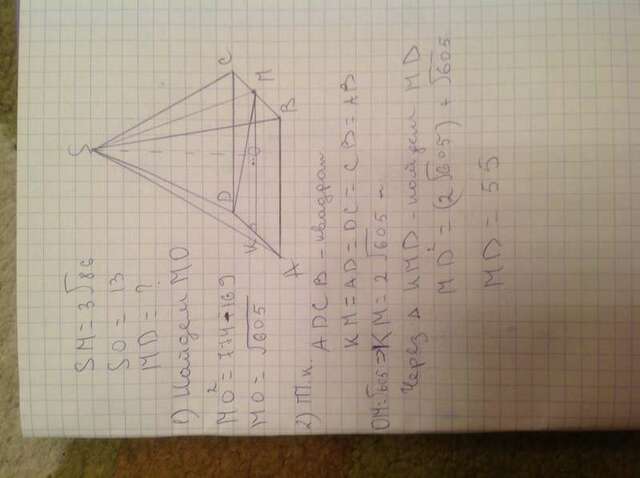 SM = 3√86
SO = 13
MD = ?
1) Найдем MO
MO² = 774 - 169
MO = √605
2) Т.к. ADCB - квадрат
KM = AD = DC = CB = AB
OM = √605 => KM = 2√605
Через △ KMD - найдем MD
MD² = (2√605) + √605
MD = 55
S
D
C
K
O
M
A
B